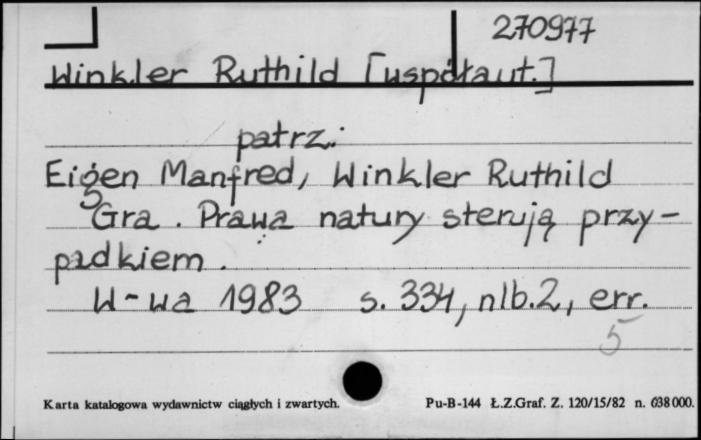 270977
Winkler Ruthild [współaut.]
patrz:
Eigen Manfred, Winkler Ruthild
Gra. Prawa natury sterują przy-
padkiem.
W-wa 1983 s. 334, nlb. 2, err.
5
Karta katalogowa wydawnictw ciągłych i zwartych. Pu-B-144 Ł.Z.Graf. Z. 120/15/82 n. 638 000.